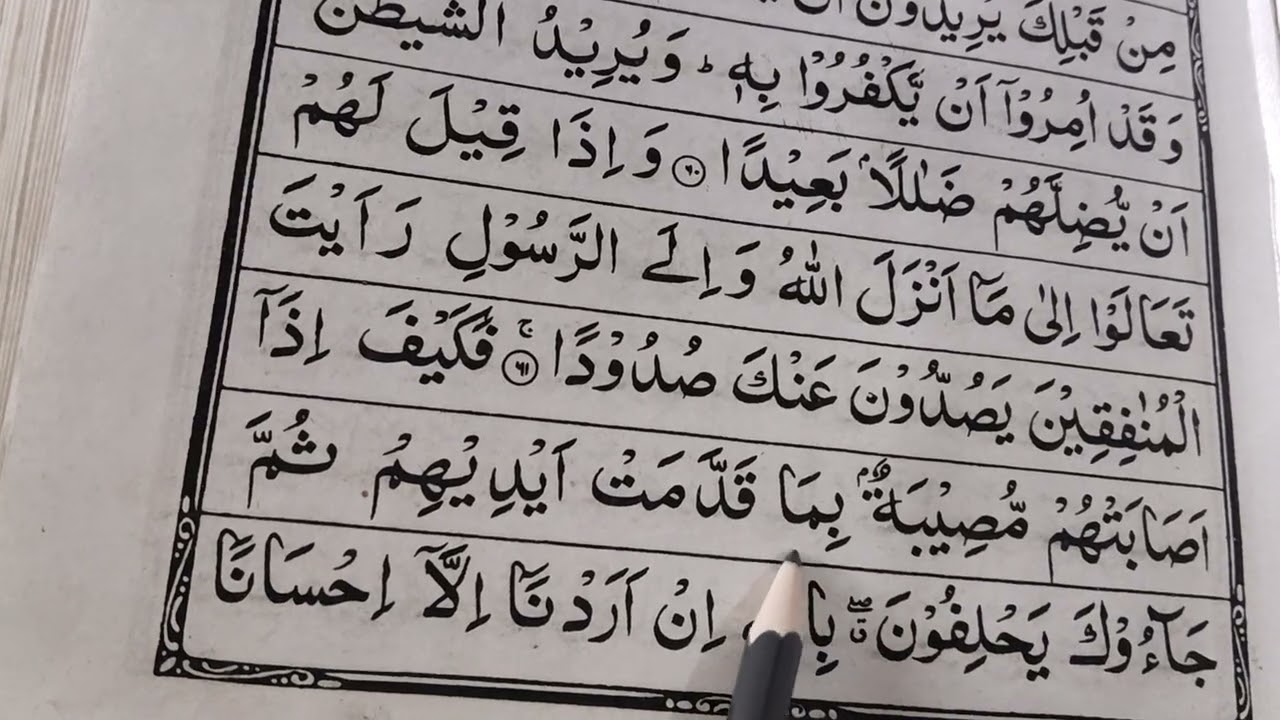 مِنْ قَبْلِكَ يُرِيْدُوْنَ اَنْ
وَقَدْ اُمِرُوْۤا اَنْ يَّكْفُرُوْا بِهٖ ؕ وَيُرِيْدُ الشَّيْطٰنُ
اَنْ يُّضِلَّهُمْ ضَلٰلًاۢ بَعِيْدًا ۝۶۰ وَاِذَا قِيْلَ لَهُمْ
تَعَالَوْا اِلٰى مَاۤ اَنْزَلَ اللّٰهُ وَاِلَى الرَّسُوْلِ رَاَيْتَ
الْمُنٰفِقِيْنَ يَصُدُّوْنَ عَنْكَ صُدُوْدًا ۚ۝۶۱ فَكَيْفَ اِذَاۤ
اَصَابَتْهُمْ مُّصِيْبَةٌۢ بِمَا قَدَّمَتْ اَيْدِيْهِمْ ثُمَّ
جَآءُوْكَ يَحْلِفُوْنَ ۖۗ اِنْ اَرَدْنَاۤ اِلَّاۤ اِحْسَانًا